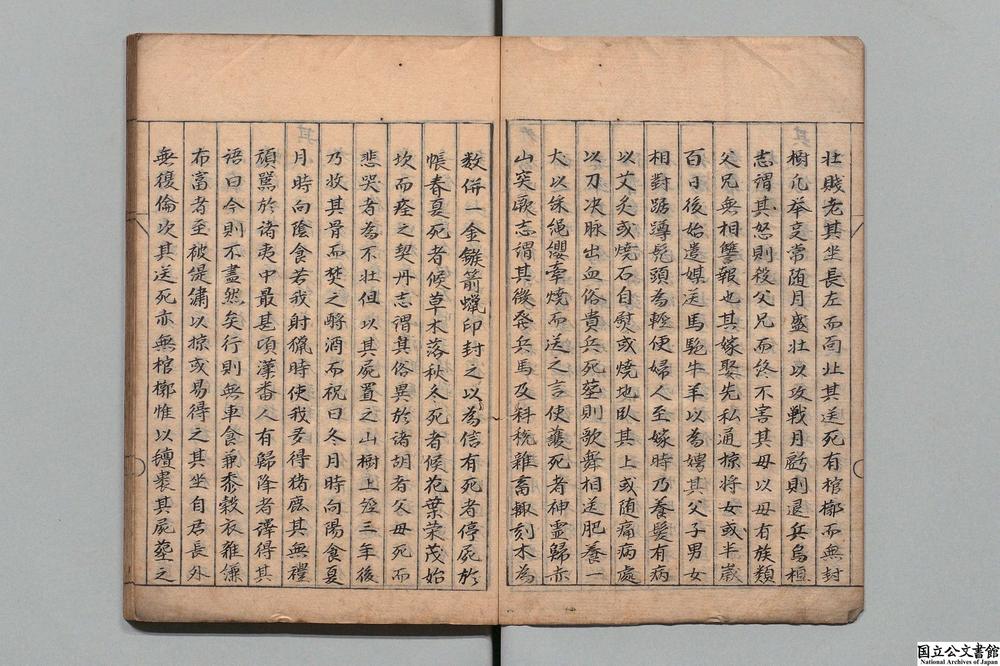 壮賤老其坐長左而向北其送死有棺槨而無封
樹凢举事常随月盛壮以攻戦月虧則退兵烏桓
志謂其怒則殺父兄而終不害其母以母有族類
父兄無相讐報也其嫁娶先私通掠将女或半嵗
百日後始遣媒送馬駝牛羊以為娉其父子男女
相對踞蹲髡頭為輕便婦人至嫁時乃養髪有病
以艾灸或焼石自熨或焼地臥其上或随痛病處
以刀决脉出血俗貴兵死塟則歌舞相送肥養一
犬以綵繩纓牽焼而送之言使護死者神霊歸赤
山突厥志謂其徴発兵馬及科稅雜畜輙刻木為
数併一金鏃箭蠟印封之以為信有死者停屍於
帳春夏死者候草木落秋冬死者候花葉荣茂始
坎而瘞之契丹志謂其俗異於諸胡者父母死而
悲哭者為不壮但以其屍置之山樹上経三年後
乃收其骨而焚之酹酒而祝曰冬月時向陽食夏
月時向陰食若我射猟時使我多得猪鹿其無禮
頑嚚於诸夷中最甚項漢番人有歸降者譯得其
語曰今則不盡然矣行則無車食兼黍穀衣雜縑
布富者至被緹繡以掠或易得之其坐自君長外
無復倫次其送死亦無棺槨惟以氊裘其屍塟之
国立公文書館
National Archives of Japan